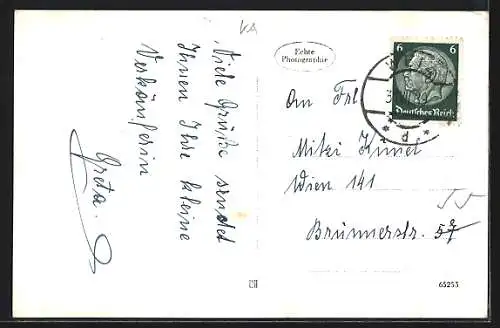 KA
Viele Grüße sendet
Ihnen Ihre kleine
Verkäuferin
Greta.
Echte
Photographie
6 6
Deutsches Reich
* d *
An Frl
Mitzi
Wien 141
Brünnerstr.
65255